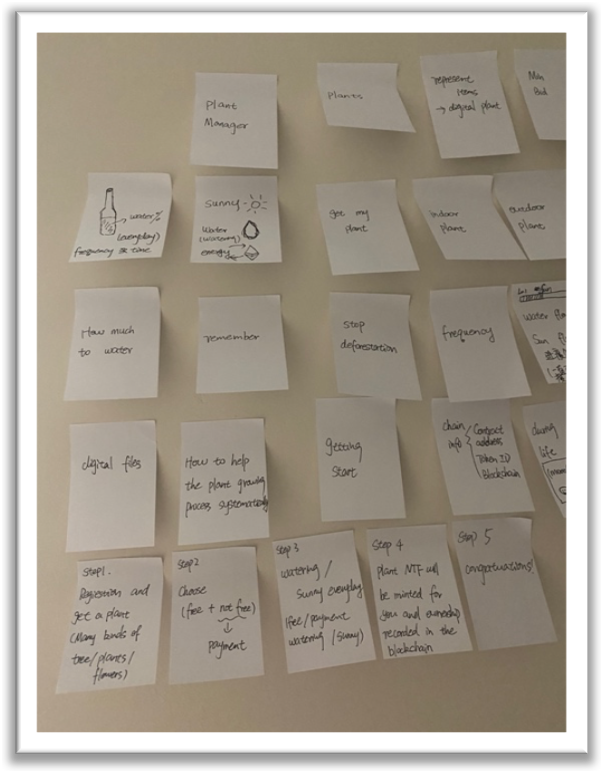 Plant
Manager
Plants
represent
items
→ digital plant
Min
Bod
→ water%
(everyday)
frequency & time
sunny
Water
(watering)
energy
get my
plant
indoor
plant
outdoor
plant
How much
to water
remember
stop
deforestation
frequency
water
Sun
digital files
How to help
the plant growing
process systematically
getting
start
chain
info
Contract
address
Token ID
Blockchain
during
life
step1.
Registration and
get a plant
(Many kinds of
tree/plants/
flowers)
step2
Choose
(free + not free)
↓
payment
step 3
watering /
sunny everyday
(fee/payment
watering /sunny)
Step 4
plant NTF will
be minted for
you and ownership
recorded in the
blockchain
Step 5
congratuations!